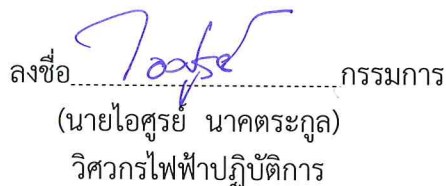 ลงชื่อ ไอศูรย์ กรรมการ
(นายไอศูรย์ นาคตระกูล)
วิศวกรไฟฟ้าปฏิบัติการ